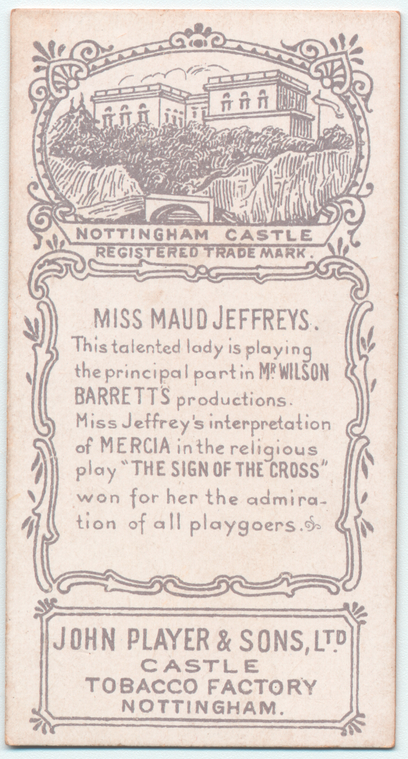 NOTTINGHAM CASTLE
REGISTERED TRADE MARK.
MISS MAUD JEFFREYS.
This talented lady is playing
the principal part in MR WILSON
BARRETT'S productions.
Miss Jeffrey's interpretation
of MERCIA in the religious
play "THE SIGN OF THE CROSS"
won for her the admira-
tion of all playgoers.
JOHN PLAYER & SONS, LTD
CASTLE
TOBACCO FACTORY
NOTTINGHAM.